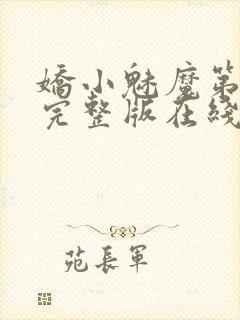 嬌小魅魔第
完整版在綫
苑長軍